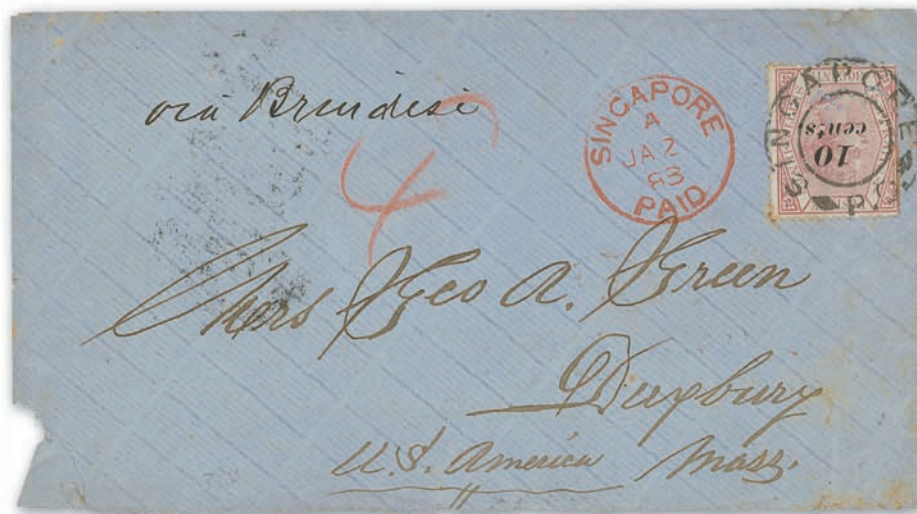 via Brindisi
4
SINGAPORE
A
JA 2
83
PAID
SINGAPORE
10
cents
Mrs Geo A. Green
Duxbury
U.S. America Mass.